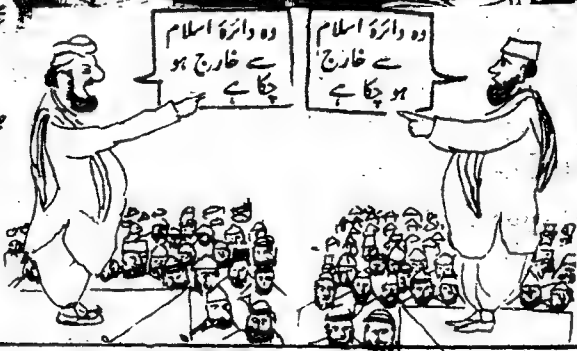 وہ دائرۂ اسلام
سے خارج ہو
چکا ہے
وہ دائرۂ اسلام
سے خارج
ہو چکا ہے